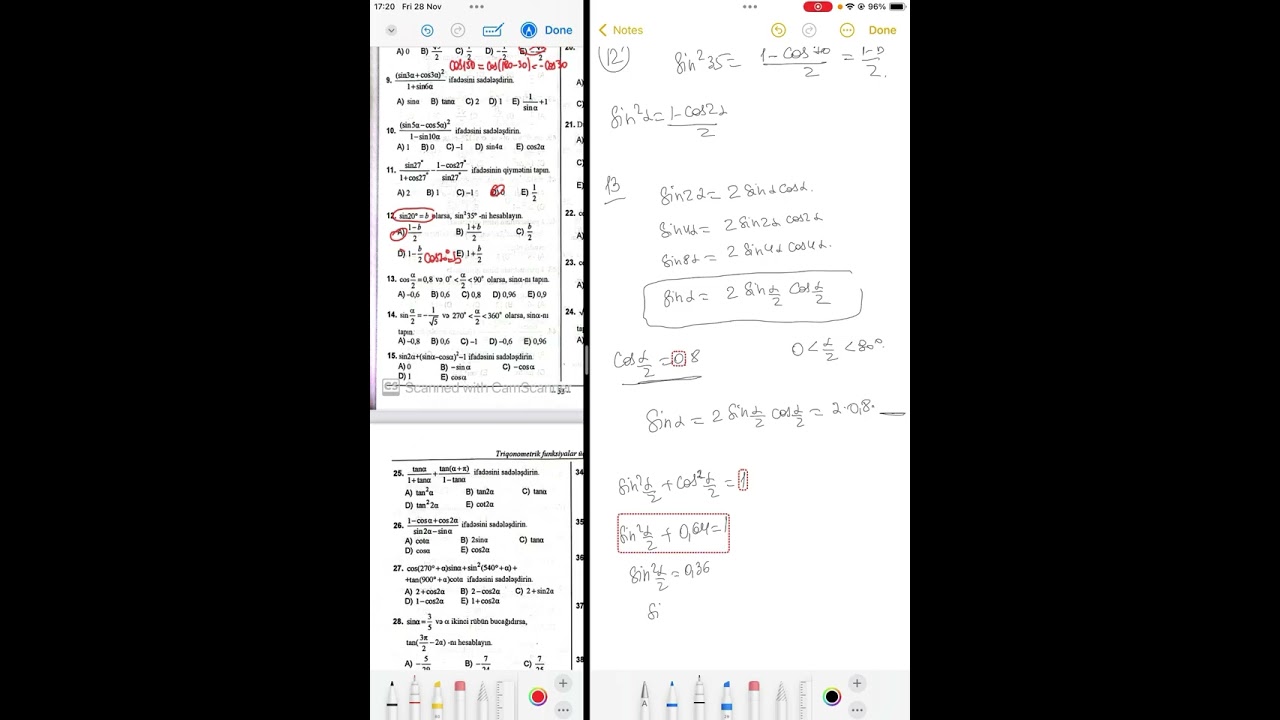 17:20 Fri 28 Nov
96%
Done
Notes
Done
A) 0 B) C) D) E)
cos150 = cos(180-30) = -cos30
9. (sin3α+cos3α)²/1+sin6α ifadəsini sadələşdirin.
A) sinα B) tanα C) 2 D) 1 E) 1/sinα +1
10. (sin5α−cos5α)²/1−sin10α ifadəsini sadələşdirin.
A) 1 B) 0 C) −1 D) sin4α E) cos2α
11. sin27°/1+cos27° − 1−cos27°/sin27° ifadəsinin qiymətini tapın.
A) 2 B) 1 C) −1 E) 1/2
12. sin20° = b olarsa, sin²35° -ni hesablayın.
A) 1−b/2 B) 1+b/2 C) b/2
D) 1−b/2 E) 1+b/2
cos70°=b
13. cos α/2 = 0,8 və 0° < α/2 < 90° olarsa, sinα-nı tapın.
A) −0,6 B) 0,6 C) 0,8 D) 0,96 E) 0,9
14. sin α/2 = −1/√5 və 270° < α/2 < 360° olarsa, sinα-nı
tapın.
A) −0,8 B) 0,6 C) −1 D) −0,6 E) 0,96
15. sin2α+(sinα−cosα)²−1 ifadəsini sadələşdirin.
A) 0 B) −sinα C) −cosα
D) 1 E) cosα
CS Scanned with CamScanner
21. D
22. c
23. c
24. √
Triqonometrik funksiyalar ü
25. tanα/1+tanα + tan(α+π)/1−tanα ifadəsini sadələşdirin.
A) tan²α B) tan2α C) tanα
D) tan²2α E) cot2α
26. 1−cosα+cos2α/sin2α−sinα ifadəsini sadələşdirin.
A) cotα B) 2sinα C) tanα
D) cosα E) cos2α
27. cos(270°+α)sinα+sin²(540°+α)+
+tan(900°+α)cotα ifadəsini sadələşdirin.
A) 2+cos2α B) 2−cos2α C) 2+sin2α
D) 1−cos2α E) 1+cos2α
28. sinα = 3/5 və α ikinci rübün bucağıdırsa,
tan(3π/2 −2α) -nı hesablayın.
A) − B) −7/24 C) 7/25
34
35
36
37
38
12 sin²35 = 1−cos70/2 = 1−b/2.
sin²α = 1−cos2α/2
13 sin2α = 2 sinα cosα.
sin4α = 2 sin2α cos2α
sin8α = 2 sin4α cos4α.
sinα = 2 sin α/2 cos α/2
cos α/2 = 0,8 0 < α/2 < 90°.
sinα = 2 sin α/2 cos α/2 = 2·0,8·
sin² α/2 + cos² α/2 = 1
sin² α/2 + 0,64 = 1
sin² α/2 = 0,36
si